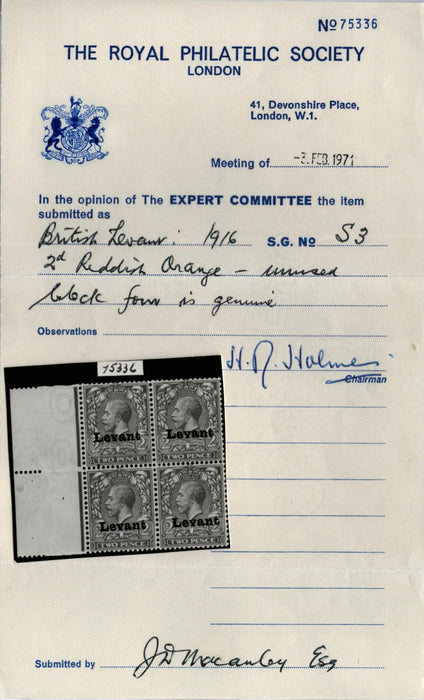 No 75336
THE ROYAL PHILATELIC SOCIETY
LONDON
41, Devonshire Place,
London, W.1.
Meeting of -3. FEB. 1971
In the opinion of The EXPERT COMMITTEE the item
submitted as
British Levant: 1916 S.G. No S3
2d Reddish Orange – unused
block four is genuine
Observations
H. R. Holmes
Chairman
75336
Levant Levant
TWO PENCE TWO PENCE
Levant Levant
TWO PENCE TWO PENCE
Submitted by J D Macauley Esq